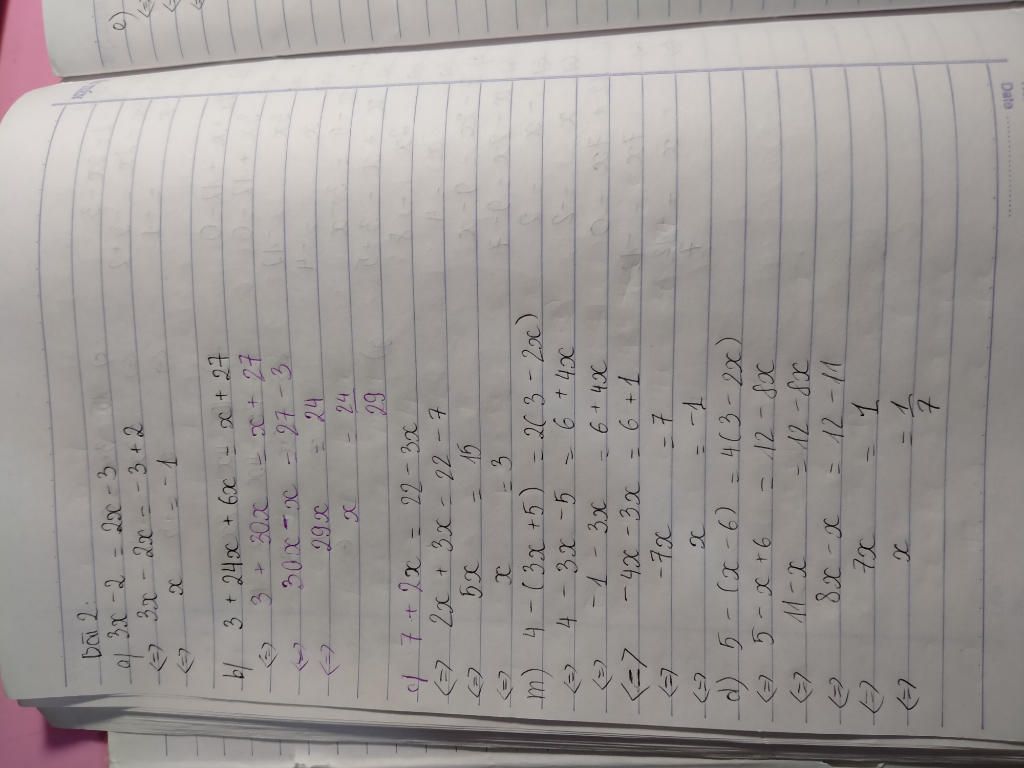 Bài 2.
a) 3x - 2 = 2x - 3
<=> 3x - 2x = -3 + 2
<=> x = -1
b) 3 + 24x + 6x = x + 27
<=> 3 + 30x = x + 27
<=> 30x - x = 27 - 3
<=> 29x = 24
x = 24/29
c) 7 + 2x = 22 - 3x
<=> 2x + 3x = 22 - 7
<=> 5x = 15
<=> x = 3
m) 4 - (3x + 5) = 2(3 - 2x)
<=> 4 - 3x - 5 = 6 + 4x
<=> -1 - 3x = 6 + 4x
<=> -4x - 3x = 6 + 1
<=> -7x = 7
<=> x = -1
d) 5 - (x - 6) = 4(3 - 2x)
<=> 5 - x + 6 = 12 - 8x
<=> 11 - x = 12 - 8x
<=> 8x - x = 12 - 11
<=> 7x = 1
<=> x = 1/7
Date
e)
<=>
<=>
<=>